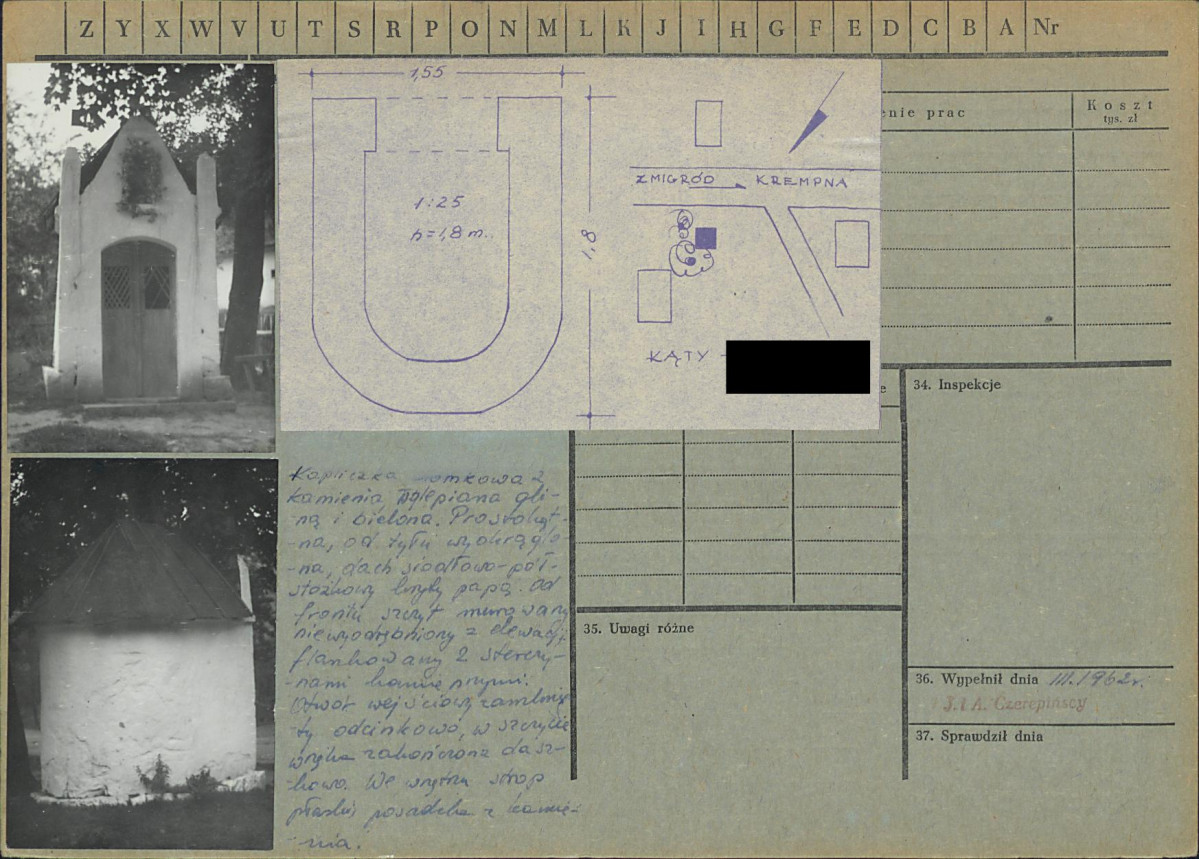 Z Y X W V U T S R P O N M L K J I H G F E D C B A Nr
1,55
1:25
h=1,8 m.
1,8
ŻMIGRÓD KREMPNA
KĄTY -
enie prac
Koszt
tys. zł
e
34. Inspekcje
Kapliczka omkowa z
kamienia oblepiana gli-
-ną i bielona. Prostokąt-
-na, od tyłu wyokrąglo-
-na, dach siodłowo-pół-
stożkowy kryty papą. Od
frontu szczyt murowany
niewyodrębniony z elewacji,
flankowany 2 sterczy-
-nami
Otwór wejściowy zamknię-
-ty odcinkowo, w szczycie
wnęka zakończona dasz-
-kowo. We wnętrzu strop
płaski, posadzka z kamie-
-nia.
35. Uwagi różne
36. Wypełnił dnia III.1962r.
J. i A. Czerepińscy
37. Sprawdził dnia